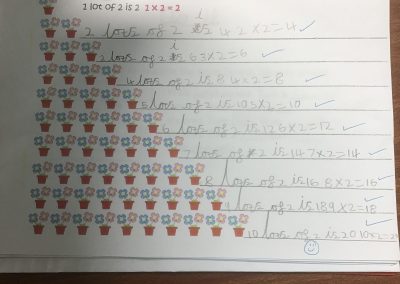 1 lot of 2 is 2 1 x 2 = 2
2 lots of 2 is 4 2 x 2 = 4
2 lots of 2 is 6 3 x 2 = 6
4 lots of 2 is 8 4 x 2 = 8
5 lots of 2 is 10 5 x 2 = 10
6 lots of 2 is 12 6 x 2 = 12
7 lots of 2 is 14 7 x 2 = 14
8 lots of 2 is 16 8 x 2 = 16
9 lots of 2 is 18 9 x 2 = 18
10 lots of 2 is 20 10 x 2 = 20